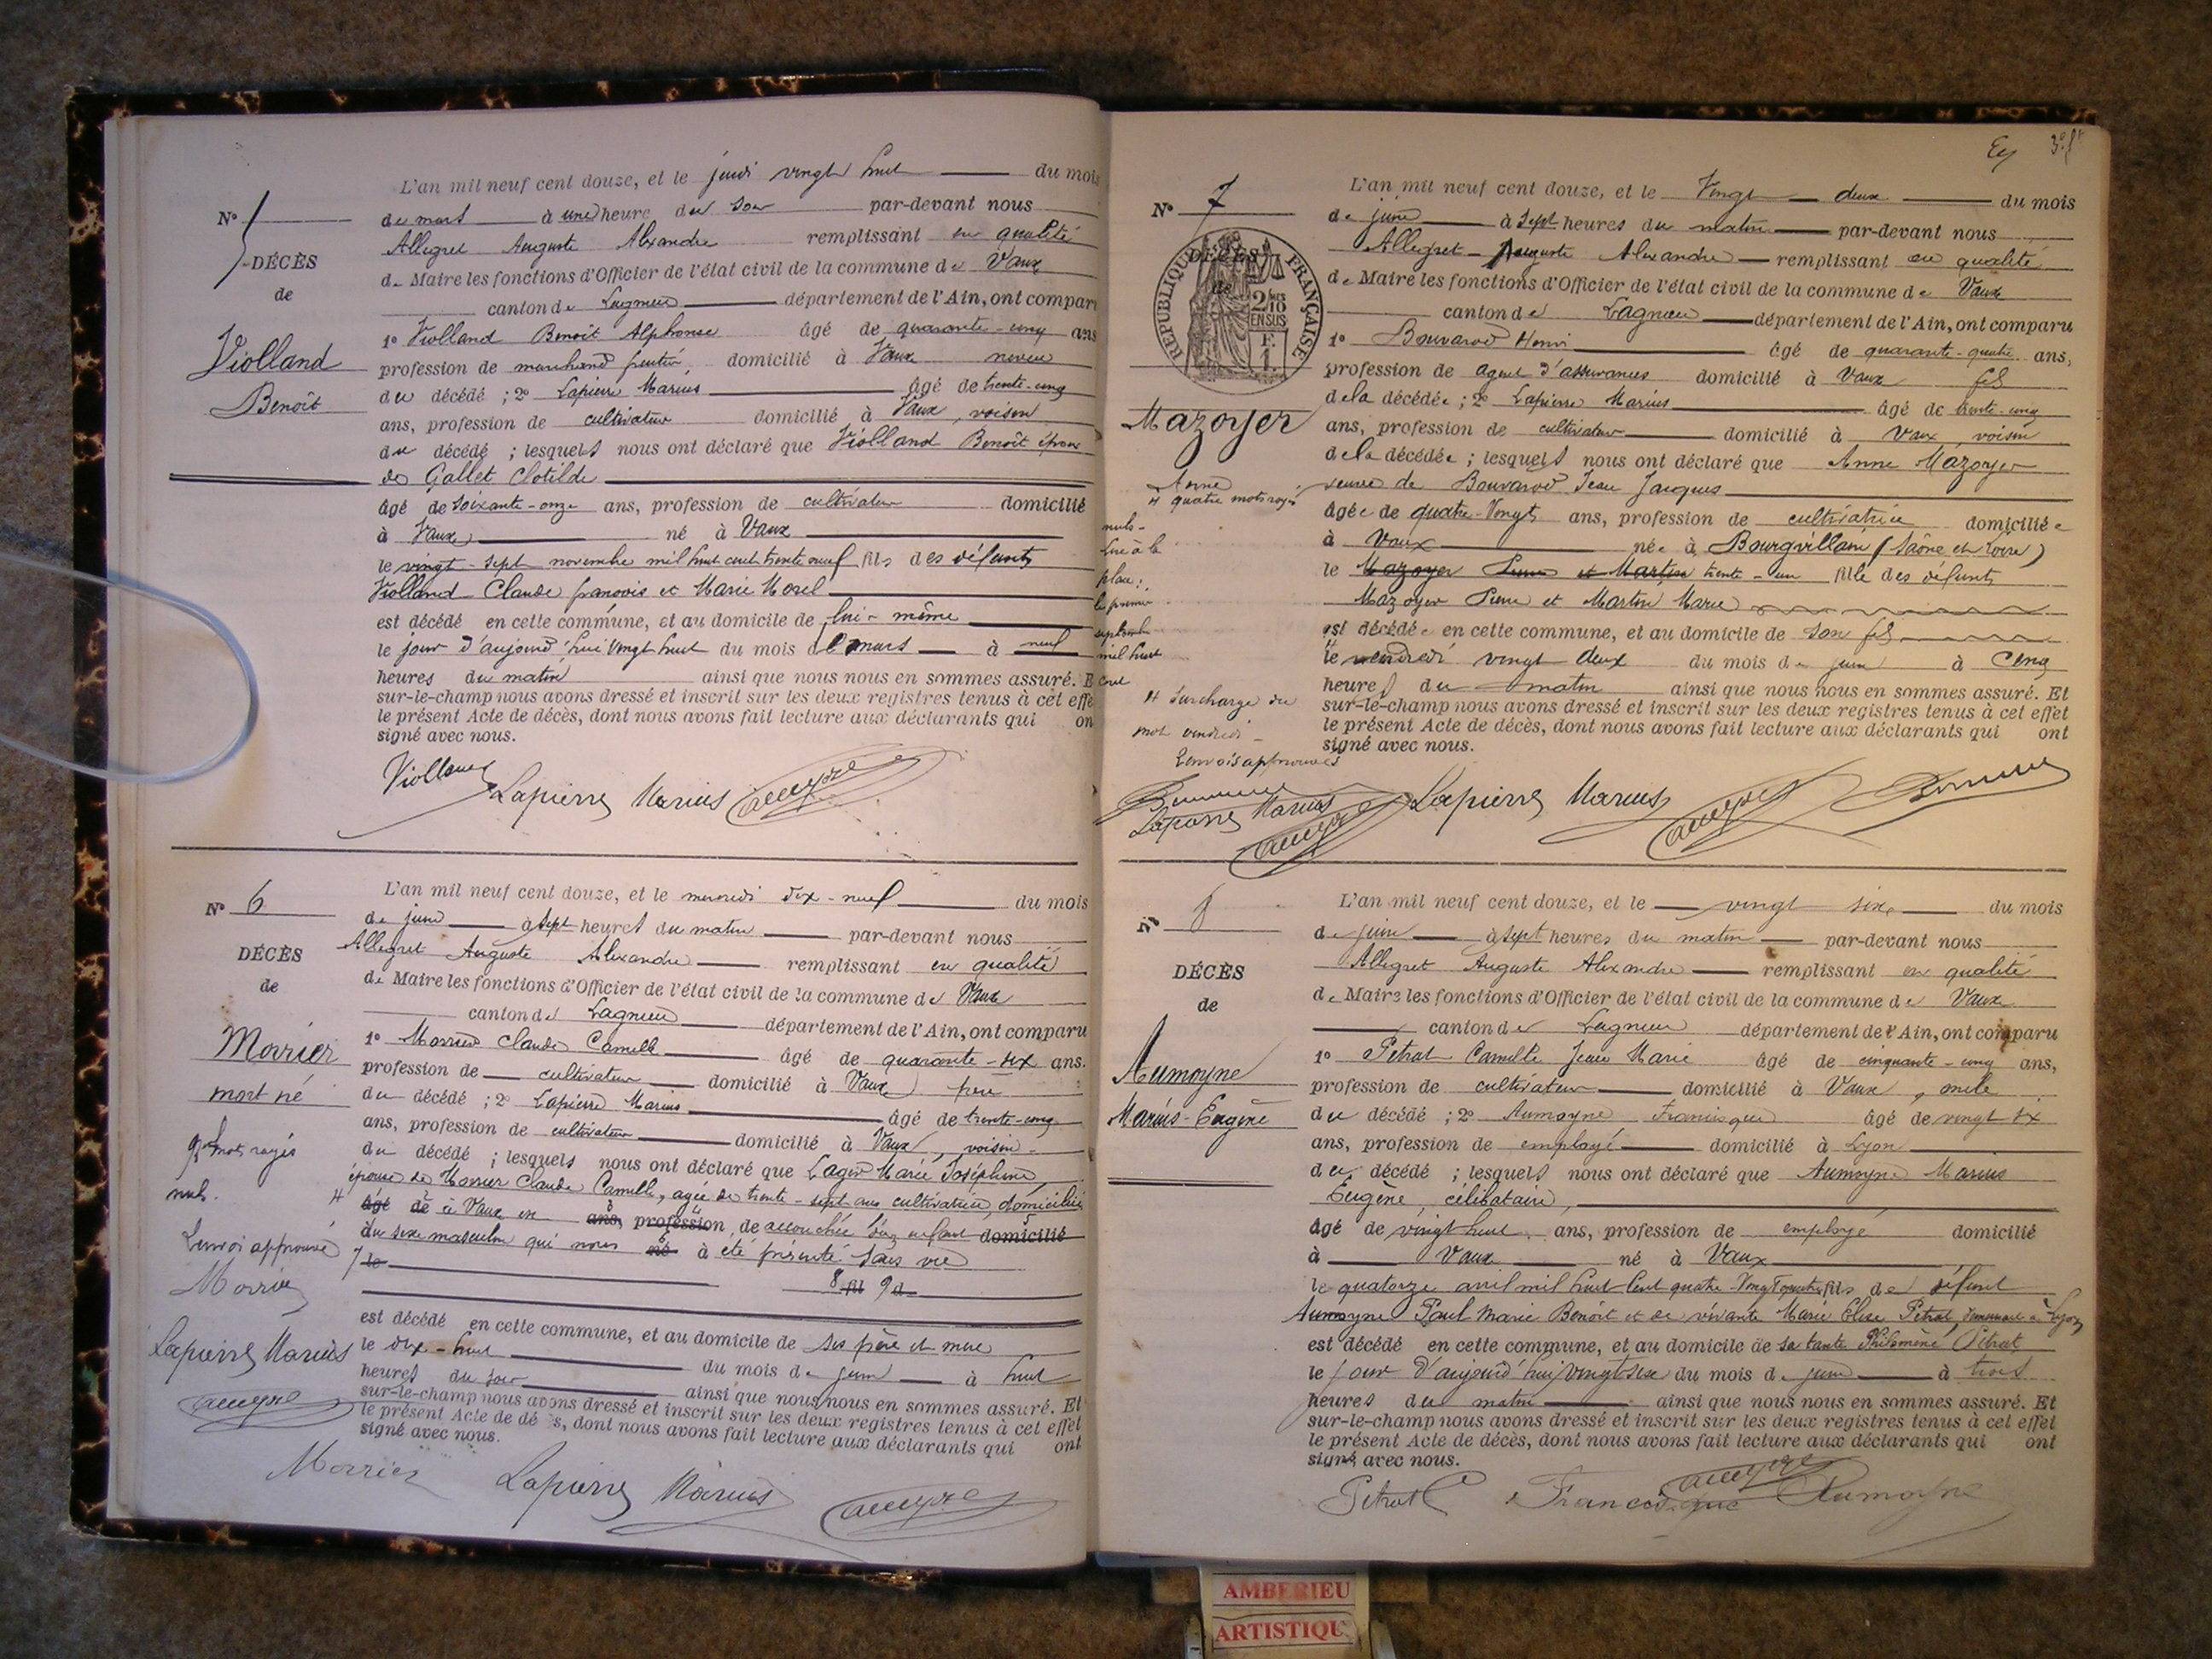 L'an mil neuf cent douze, et le jeudi vingt huit du mois
N° 5
de mars à une heure du soir par-devant nous
Allegret Auguste Alexandre remplissant en qualité
DÉCÈS
de Maire les fonctions d'Officier de l'état civil de la commune de Vaux
de
canton de Lagnieu département de l'Ain, ont compar
1° Violland Benoît Alphonse âgé de quarante-cinq ans
Violland
profession de marchand domicilié à Vaux neveu
Benoît
du décédé ; 2° Lapierre Marius âgé de trente-cinq
ans, profession de cultivateur domicilié à Vaux, voisin
du décédé ; lesquels nous ont déclaré que Violland Benoît époux
de Gallet Clotilde
âgé de soixante-onze ans, profession de cultivateur domicilié
à Vaux né à Vaux
le vingt-sept novembre mil huit cent trente neuf fils des défunts
Violland Claude françois et Marie Morel
est décédé en cette commune, et au domicile de lui-même
le jour d'aujourd'hui vingt huit du mois de mars à neuf
heures du matin ainsi que nous nous en sommes assuré. E
sur-le-champ nous avons dressé et inscrit sur les deux registres tenus à cet effe
le présent Acte de décès, dont nous avons fait lecture aux déclarants qui on
signé avec nous.
Violland Lapierre Marius
L'an mil neuf cent douze, et le mercredi dix-neuf du mois
N° 6
de juin à sept heures du matin par-devant nous
Allegret Auguste Alexandre remplissant en qualité
DÉCÈS
de Maire les fonctions d'Officier de l'état civil de la commune de Vaux
de
canton de Lagnieu département de l'Ain, ont comparu
1° Morrier Claude Camille âgé de quarante-six ans.
Morrier
profession de cultivateur domicilié à Vaux père
mort né
du décédé ; 2° Lapierre Marius âgé de trente-cinq
ans, profession de cultivateur domicilié à Vaux, voisin
du décédé ; lesquels nous ont déclaré que Marie Joséphine
9 mots rayés
nuls.
épouse de Morrier Claude Camille, agée de trente-sept ans cultivatrice, domiciliée
âgé de à Vaux ans, profession de accouchée d'un enfant domicilié
du sexe masculin qui nous né à été présenté sans vie
Renvoi approuvé
le
Morrier
fils d
est décédé en cette commune, et au domicile de ses père et mère
Lapierre Marius
le dix-huit du mois de juin à huit
heures du soir ainsi que nous nous en sommes assuré. Et
sur-le-champ nous avons dressé et inscrit sur les deux registres tenus à cet effet
le présent Acte de dé s, dont nous avons fait lecture aux déclarants qui ont
signé avec nous.
Morrier Lapierre Marius
3e
L'an mil neuf cent douze, et le Vingt deux du mois
N° 7
de juin à sept heures du matin par-devant nous
Allegret Auguste Alexandre remplissant en qualité
DÉCÈS
de
RÉPUBLIQUE FRANÇAISE
2/10 EN SUS
F. 1.
de Maire les fonctions d'Officier de l'état civil de la commune de Vaux
canton de Lagnieu département de l'Ain, ont comparu
1° Bouvarod Henri âgé de quarante-quatre ans,
profession de agent d'assurances domicilié à Vaux fils
de la décédée ; 2° Lapierre Marius âgé de trente-cinq
Mazoyer
ans, profession de cultivateur domicilié à Vaux voisin
de la décédée ; lesquels nous ont déclaré que Anne Mazoyer
Anne
veuve de Bouvarod Jean Jacques
quatre mots rayés
nuls-
Lire à la
place :
le premier
septembre
mil huit
cent
âgée de quatre-Vingts ans, profession de cultivatrice domiciliée
à Vaux née à Bourgvillain (Saône et Loire)
le Mazoyer Pierre et Martin trente-un fille des défunts
Mazoyer Pierre et Martin Marie
est décédée en cette commune, et au domicile de son fils
le vendredi vingt deux du mois de juin à cinq
heures du matin ainsi que nous nous en sommes assuré. Et
Surcharge du
mot vendredi-
Renvois approuvés
sur-le-champ nous avons dressé et inscrit sur les deux registres tenus à cet effet
le présent Acte de décès, dont nous avons fait lecture aux déclarants qui ont
signé avec nous.
Lapierre Marius Lapierre Marius
L'an mil neuf cent douze, et le vingt six du mois
N° 8
de juin à sept heures du matin par-devant nous
Allegret Auguste Alexandre remplissant en qualité
DÉCÈS
de Maire les fonctions d'Officier de l'état civil de la commune de Vaux
de
canton de Lagnieu département de l'Ain, ont comparu
1° Petrat Camille Jean Marie âgé de cinquante-cinq ans,
Aumoyne
profession de cultivateur domicilié à Vaux, oncle
Marius-Eugène
du décédé ; 2° Aumoyne Francisque âgé de vingt six
ans, profession de employé domicilié à Lyon
du décédé ; lesquels nous ont déclaré que Aumoyne Marius
Eugène, célibataire,
âgé de vingt huit ans, profession de employé domicilié
à Vaux né à Vaux
le quatorze avril mil huit Cent quatre-Vingt quatre fils de défunt
Aumoyne Paul Marie Benoît et de vivante Marie Elise Petrat, demeurant à Lyon
est décédé en cette commune, et au domicile de sa tante Philomène Petrat
le jour d'aujourd'hui vingt six du mois de juin à trois
heures du matin ainsi que nous nous en sommes assuré. Et
sur-le-champ nous avons dressé et inscrit sur les deux registres tenus à cet effet
le présent Acte de décès, dont nous avons fait lecture aux déclarants qui ont
signé avec nous.
Petrat C Francisque Aumoyne
AMBERIEU
ARTISTIQU